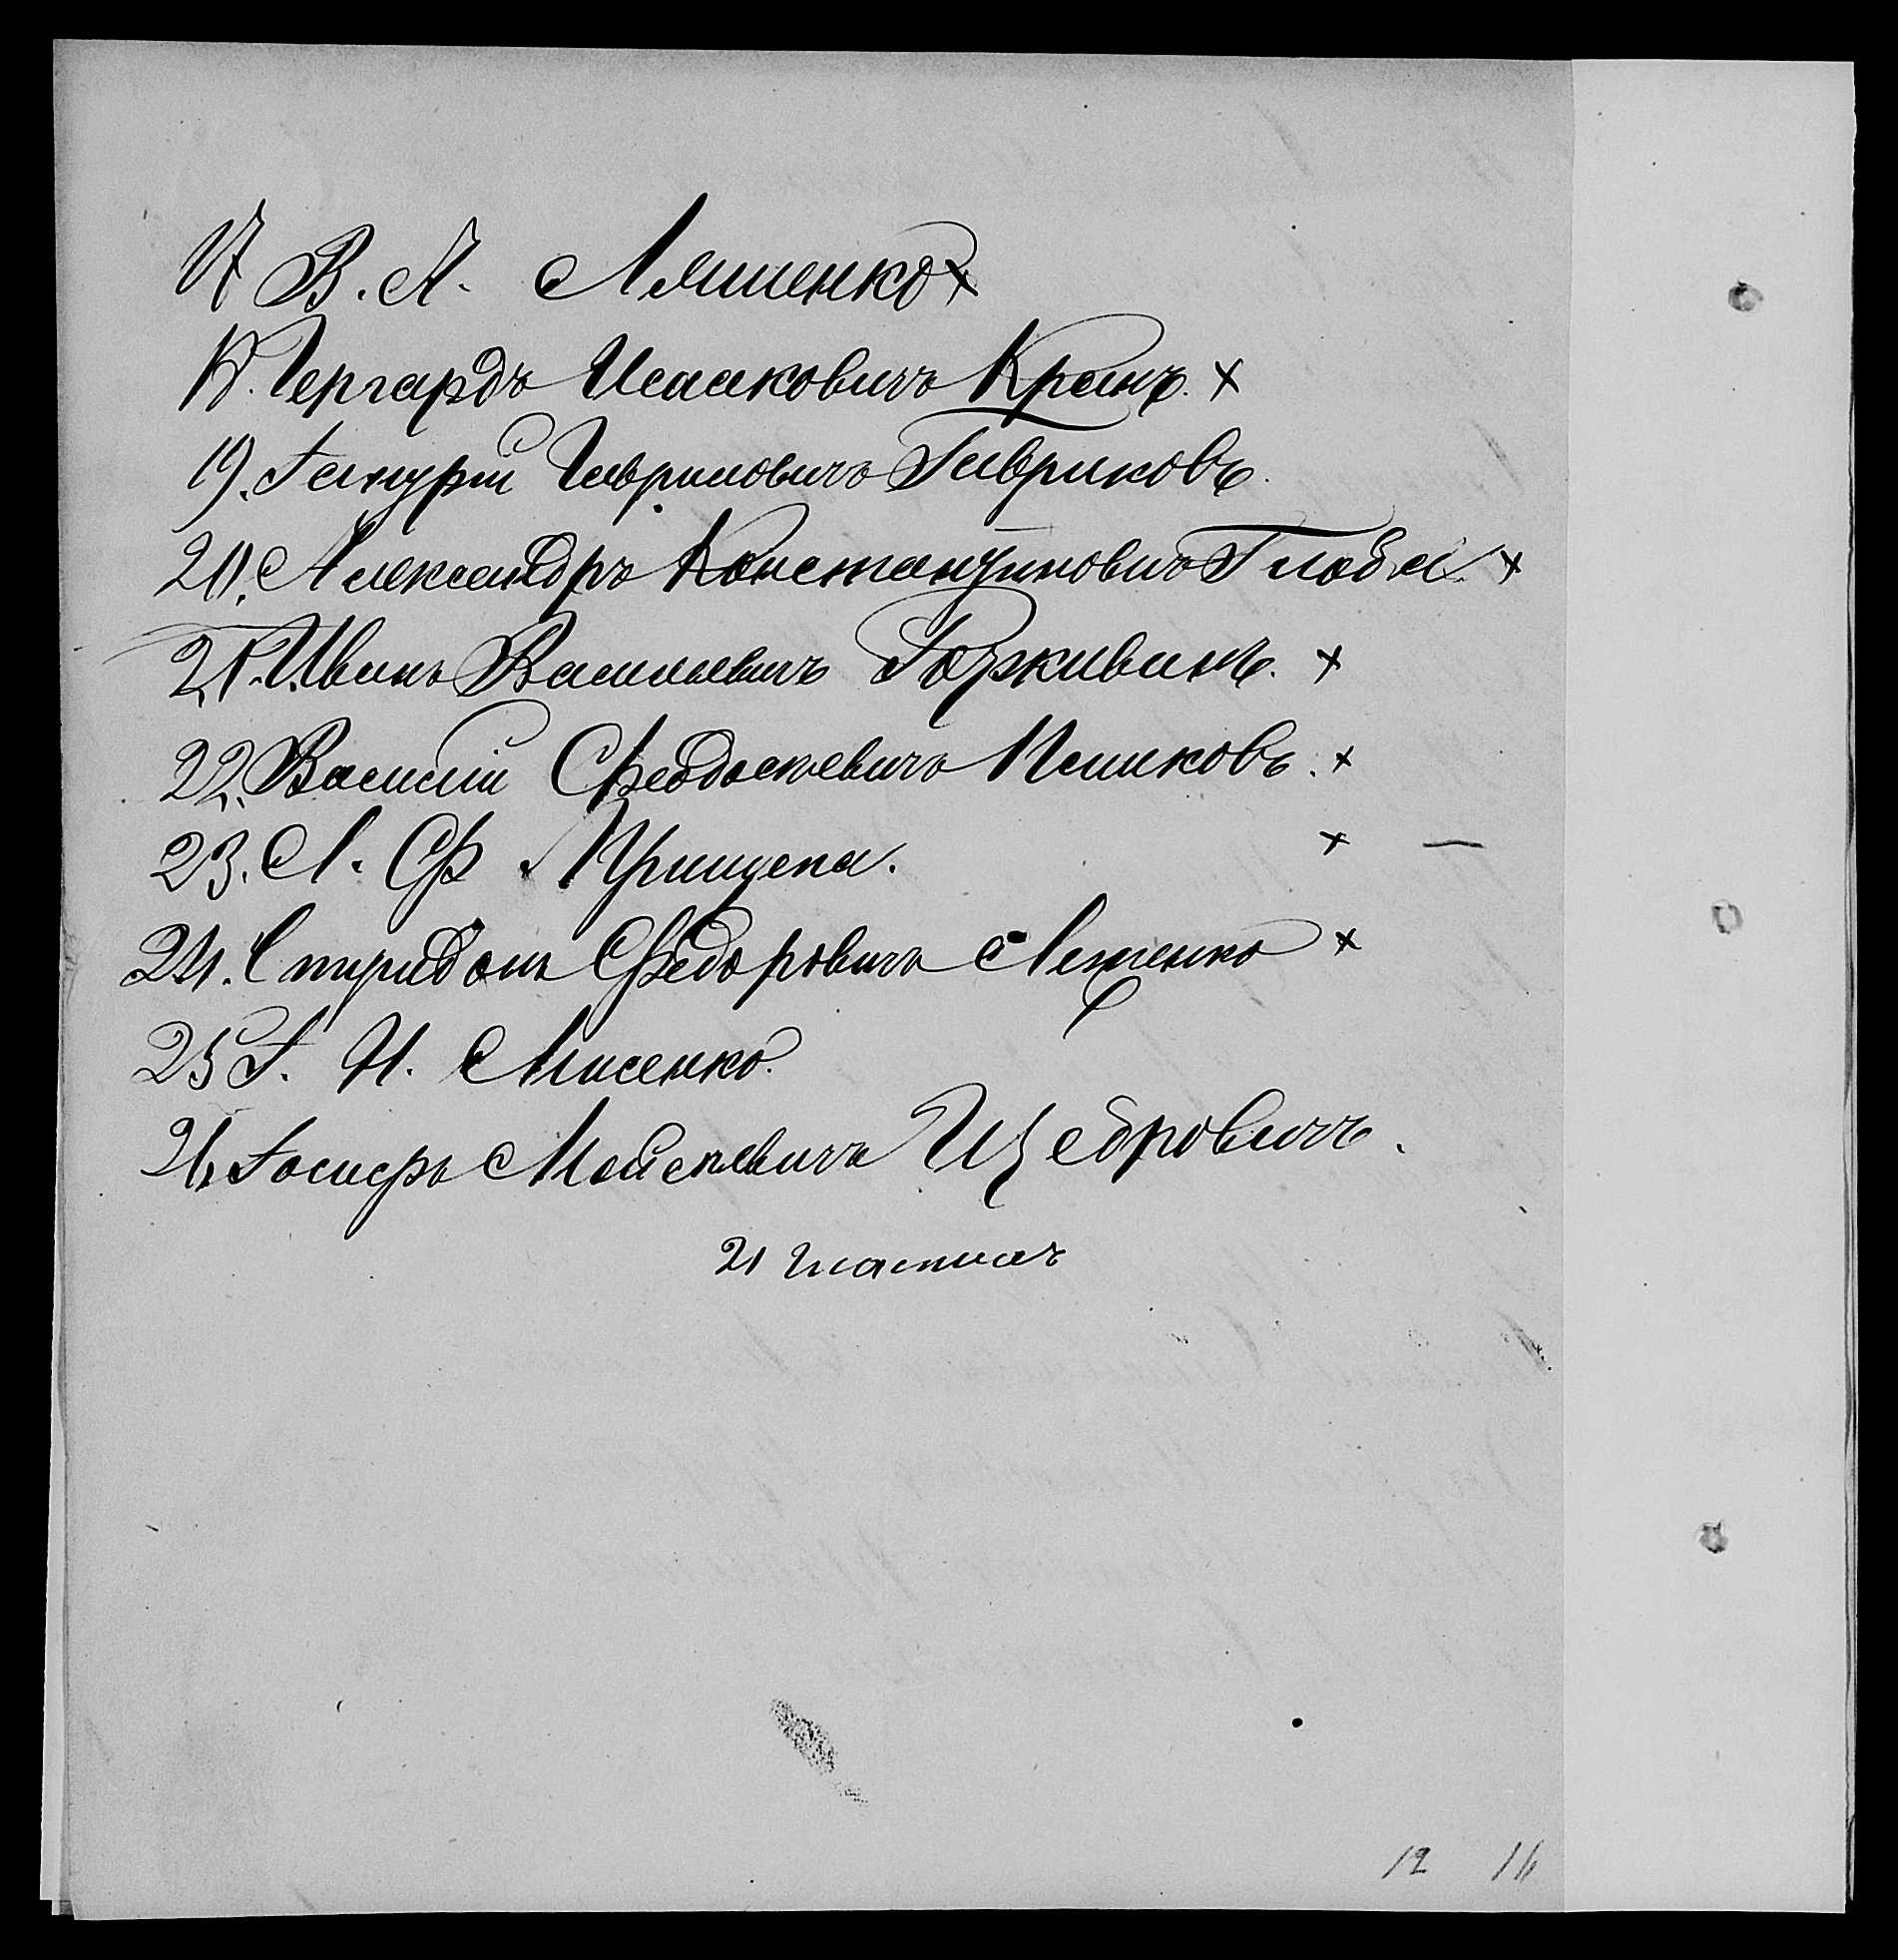 17 В. А. Ляшенко х
18. Гергардъ Исааковичъ Кранъ. х
19. Гавриловичъ Гавриковъ.
20. Александръ Константиновичъ Глоба. х
21. Иванъ Васильевичъ х
22. Василій Феодосіевичъ Пешковъ. х
23. Л. Ф. Прищепа. х —
24. Спиридонъ Федоровичъ Лещенко х
25 Г. И. Лисенко.
26. Іосифъ Мойсеевичъ Щебровичъ.
21
12 16